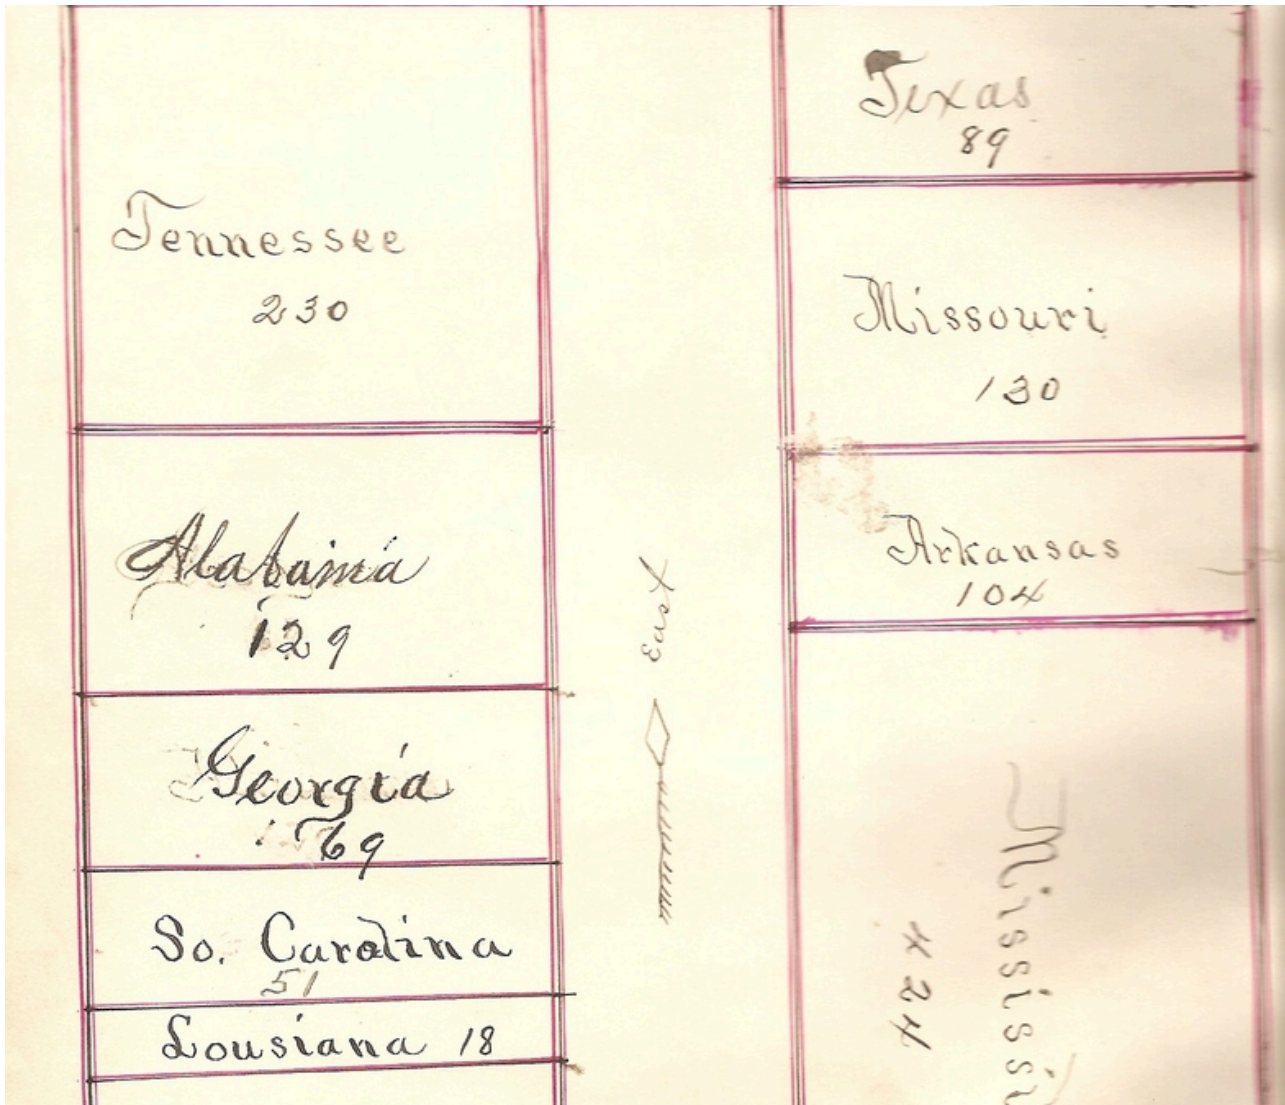 Tennessee
230
Alabama
129
Georgia
69
So. Carolina
51
Lousiana 18
East
Texas
89
Missouri
130
Arkansas
104
Mississi
424